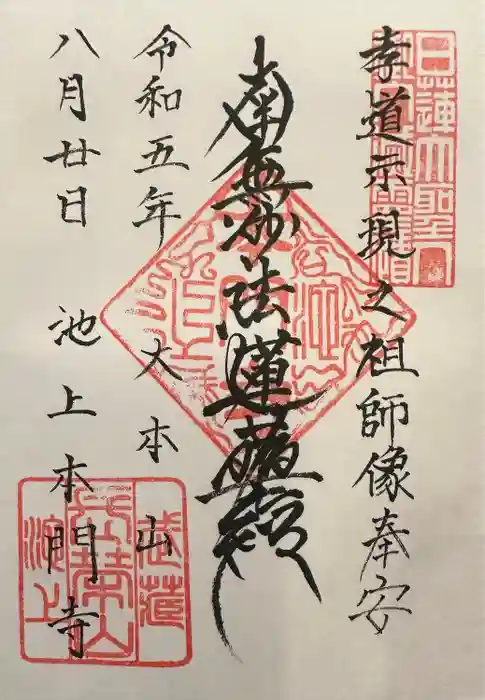 孝道示現之祖師像奉安
南無妙法蓮華経
令和五年 大本山
八月廿日 池上本門寺
日蓮大聖人